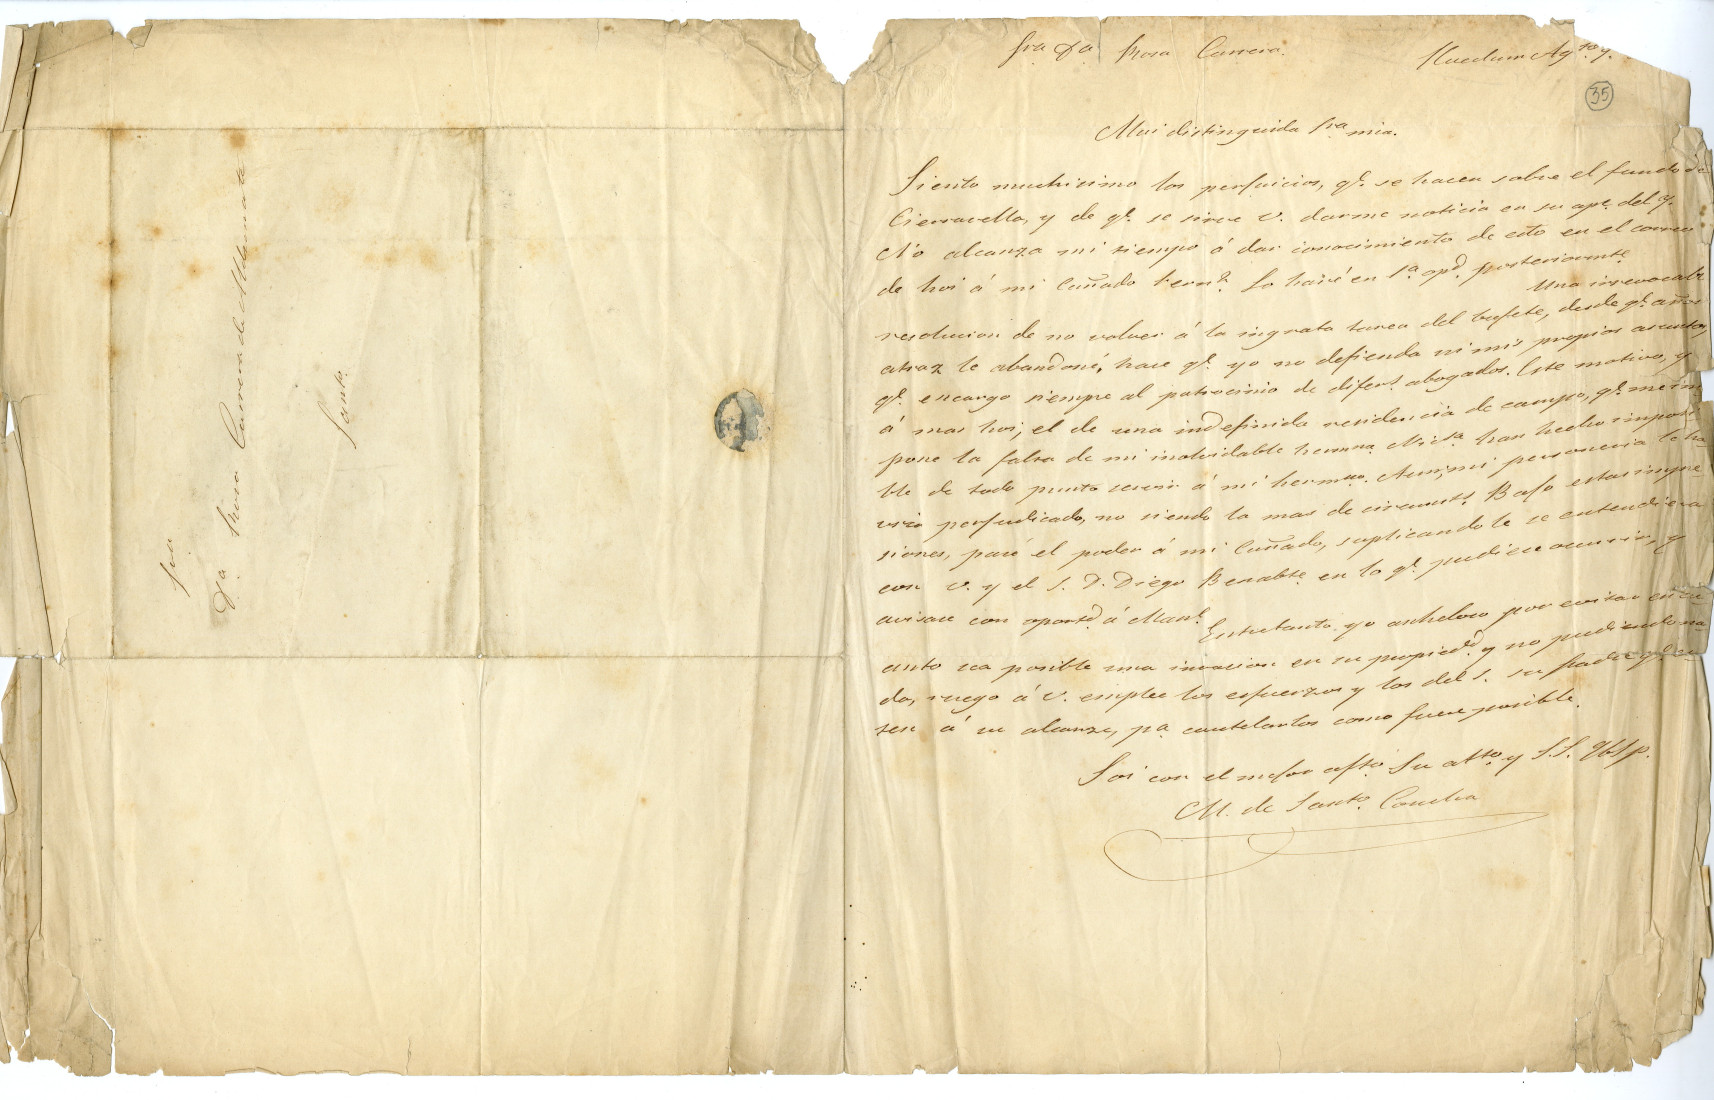 Sra
Da. Rosa Carrera de Aldunate
Santo.
Sra. Da. Rosa Carrera. Agto 9.
35
Mui distinguida Sra mia.
Siento muchisimo los perjuicios, qe. se hacen sobre el fundo de
y de qe. se sirve V. darme noticia en su ape. del 7.
No alcanza mi tiempo á dar conocimiento de esto en el correo
de hoi á mi Cuñado Lo haré en 1a. opd. posteriormte.
Una irrevocable
resolucion de no volver á la ingrata tarea del bufete, desde qe. años
atraz le abandoné, hace qe. yo no defienda ni mis propios asuntos,
qe. encargo siempre al patrocinio de difers. abogados. Este motivo, y
á mas hoi, el de una indefinida residencia de campo, qe. me im
pone la falta de mi inolvidable hermna. han hecho imposi
ble de todo punto servir á mi hermno. Aun, mi personeria le ha
bria perjudicado, no siendo la mas de circunsts. Bajo estas impre
siones, pasé el poder á mi Cuñado, suplicandole se entendiera
con V. y el S. D. Diego Benabte. en lo qe. pudiere ocurrir, y
avisare con oportd. á Manl.
Entretanto yo anhelara por evitar en cu
anto sea posible una invasion en su propiedd. y no pudiendo na
da, ruego á V. emplee los esfuerzos y los del S. su Padre qe. es
ten á su alcanze, pa. cautelarlos como fuere posible.
Soi con el mejor afto. Su atto. y S.S. QBSP.
M. de Santo. Concha